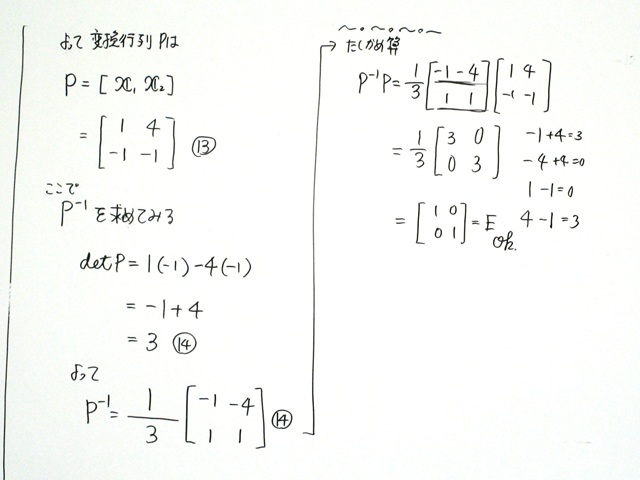 よって 変換行列 Pは
P = [ x₁ x₂ ]
= [ 1 4 ; -1 -1 ] ⑬
ここで
P⁻¹ を求めてみる
det P = 1(-1) - 4(-1)
= -1+4
= 3 ⑭
よって
P⁻¹ = 1/3 [ -1 -4 ; 1 1 ] ⑭
たしかめ算
P⁻¹P = 1/3 [ -1 -4 ; 1 1 ] [ 1 4 ; -1 -1 ]
= 1/3 [ 3 0 ; 0 3 ]
-1+4=3
-4+4=0
1-1=0
4-1=3
= [ 1 0 ; 0 1 ] = E
ok.